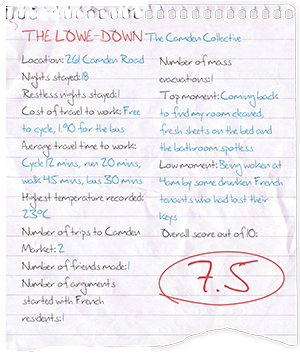 THE LOWE-DOWN The Camden Collective
Location: 261 Camden Road
Nights stayed: 18
Restless nights stayed: 1
Cost of travel to work: Free
to cycle, 1.90 for the bus
Average travel time to work:
Cycle 12 mins, run 20 mins,
walk 45 mins, bus 30 mins
Highest temperature recorded:
23°C
Number of trips to Camden
Market: 2
Number of friends made: 1
Number of arguments
started with French
residents: 1
Number of mass
evacuations: 1
Top moment: Coming back
to find my room cleaned,
fresh sheets on the bed and
the bathroom spotless
Low moment: Being woken at
4am by some drunken French
tenants who had lost their
keys
Overall score out of 10:
7.5